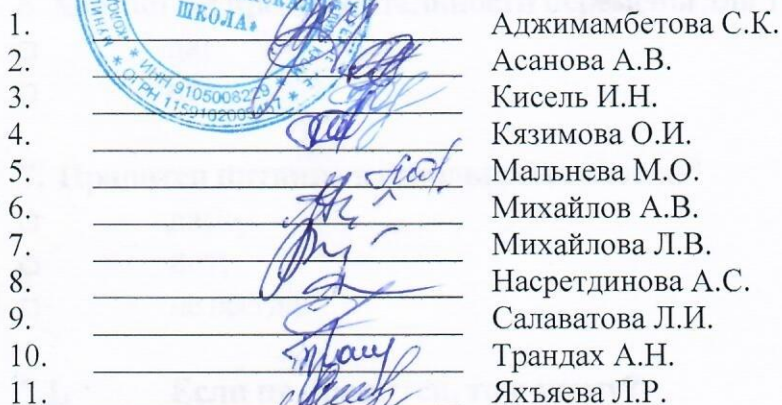 ШКОЛА»
ИНН 9105006229
ОГРН 1159102009457
1. Аджимамбетова С.К.
2. Асанова А.В.
3. Кисель И.Н.
4. Кязимова О.И.
5. Мальнева М.О.
6. Михайлов А.В.
7. Михайлова Л.В.
8. Насретдинова А.С.
9. Салаватова Л.И.
10. Трандах А.Н.
11. Яхъяева Л.Р.